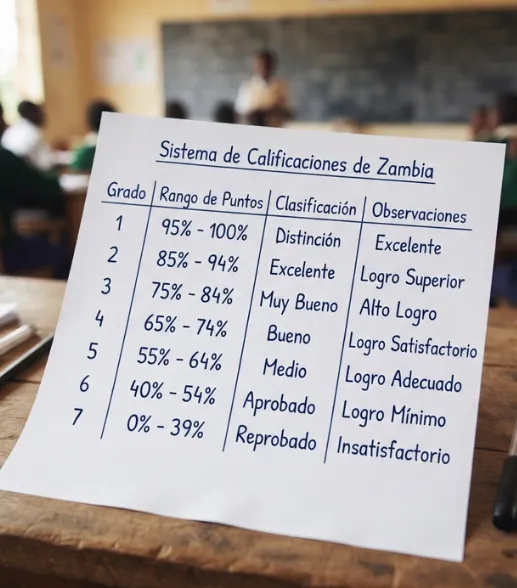 Sistema de Calificaciones de Zambia
Grado | Rango de Puntos | Clasificación | Observaciones
1 | 95% - 100% | Distinción | Excelente
2 | 85% - 94% | Excelente | Logro Superior
3 | 75% - 84% | Muy Bueno | Alto Logro
4 | 65% - 74% | Bueno | Logro Satisfactorio
5 | 55% - 64% | Medio | Logro Adecuado
6 | 40% - 54% | Aprobado | Logro Mínimo
7 | 0% - 39% | Reprobado | Insatisfactorio